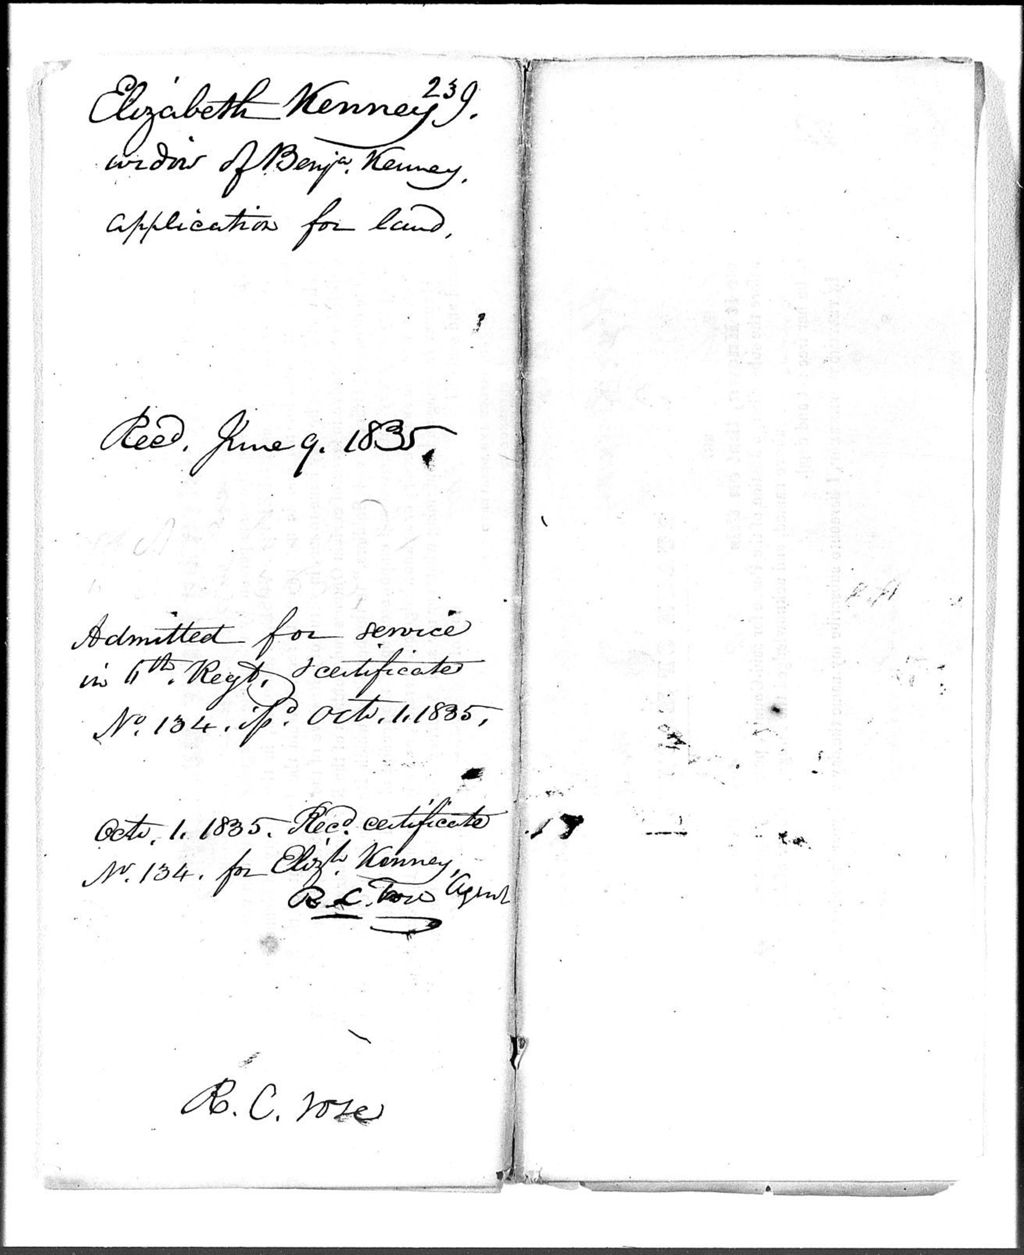 239.
Elizabeth Kenney
widow of Benja. Kenney,
application for land.
Recd. June 9. 1835.
Admitted for service
in Regt. & certificate
No. 134. isd. Octr. 1. 1835.
Octr. 1. 1835. Recd. certificate
No. 134. for Elizh. Kenney,
R. C. Vose Agent
R. C. Vose